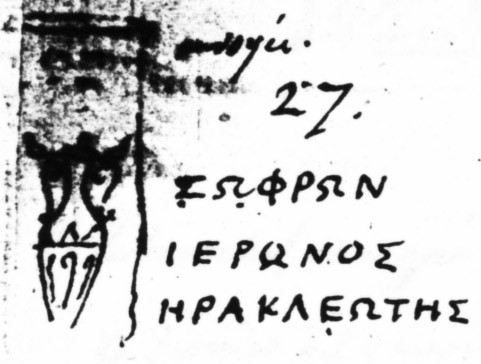 27.
ΣΩΦΡΩΝ
ΙΕΡΩΝΟΣ
ΗΡΑΚΛΕΩΤΗΣ